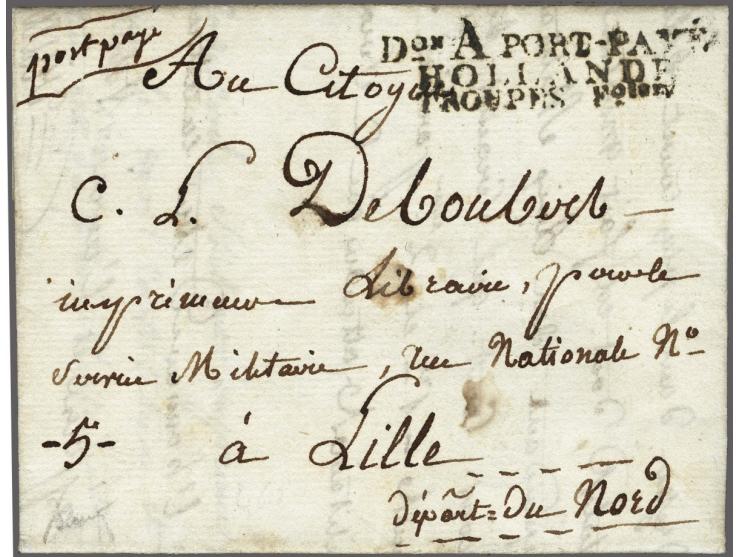 port payé
Don A PORT-PAYÉ
HOLLANDE
TROUPES Fçaises
Au Citoyen
C. L. Deboubers
imprimeur Libraire, pour le
Service Militaire, rue Nationale No
-5- à Lille
départ= du Nord